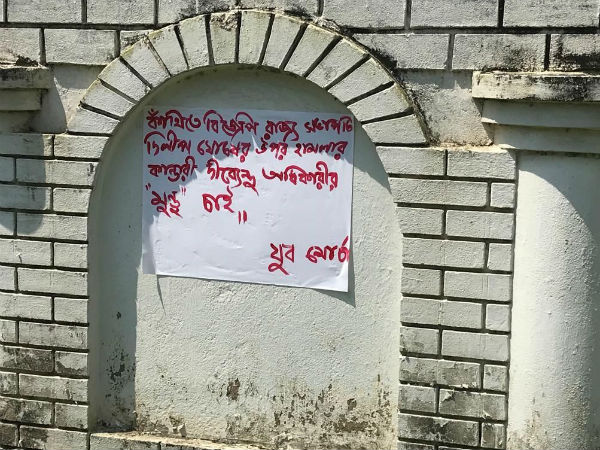 কাঁথিতে বিজেপি রাজ্য সভাপতি
দিলীপ ঘোষের উপর হামলার
কান্ডারী দীব্যেন্দু অধিকারীর
"মুন্ডু" চাই"
যুব মোর্চা